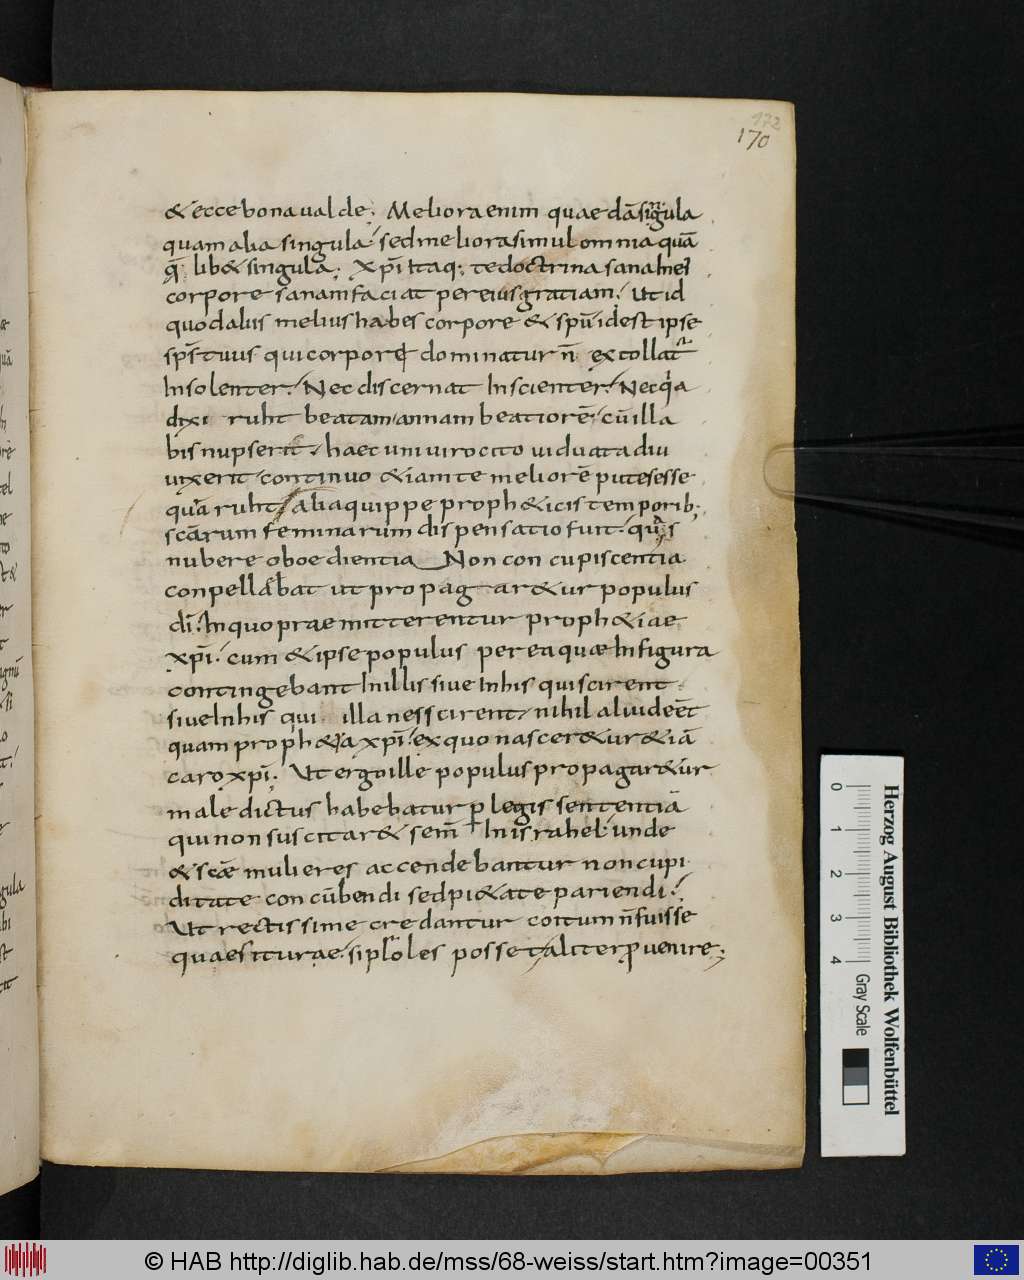 172
170
& ecce bona ualde. Meliora enim quaedā singula
quam alia singula. sed meliora simul omnia quā
q̄ lib& singula. xp̄i itaq; te doctrina sana In ei
corpore sanam faciat per eius gratiam. Ut id
quod aliis melius habes corpore & spū idest ipse
sp̄s tuus qui corpore dominatur n̄ extollat
Insolenter. Nec discernat Inscienter. Nec qa
dixi ruht beatam annam beatiorē cū illa
bis nupserit. haec uni uiro cito uiduata diu
uixerit continuo & iam te meliorē putes esse
quā ruht. alia quippe proph&icis temporib;
scārum feminarum dispensatio fuit. quas
nubere oboedientia Non concupiscentia
conpellebat ut propagar&ur populus
dī. In quo praemitterentur proph&iae
xp̄i. cum & ipse populus per ea quae In figura
contingebant In illis siue In his qui scirent
siue In his qui illa nesscirent. nihil aliud eēt
quam proph&a xp̄i. ex quo nascer&ur &iā
caro xp̄i. Ut ergo ille populus propagar&ur
maledictus habebatur p legis sententiā
qui non suscitar& sem̄ In israhel. unde
& scāe mulieres accendebantur non cupi
ditate concūbendi sed pi&ate pariendi.
Ut rectissime credantur coitum n̄ fuisse
quaesiturae. si ploles posset aliter puenire;
0 1 2 3 4
Gray Scale
Herzog August Bibliothek Wolfenbüttel
© HAB http://diglib.hab.de/mss/68-weiss/start.htm?image=00351